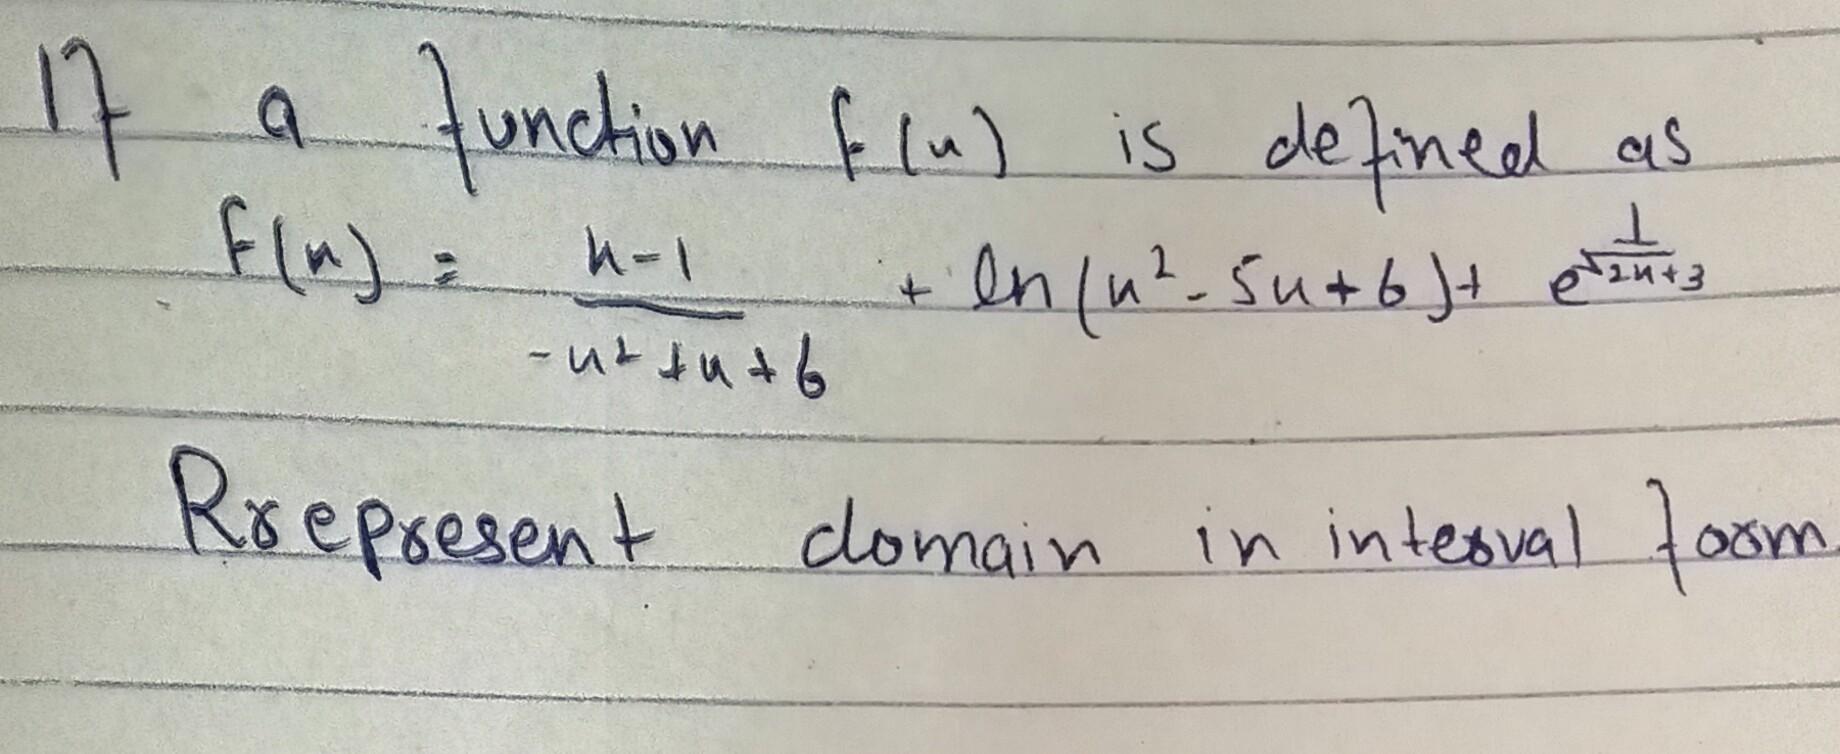 If a function f(x) is defined as
f(x) = x-1/-x²+x+6 + ln(x²-5x+6)+ e^1/√2x+3
Rrepresent domain in interval form